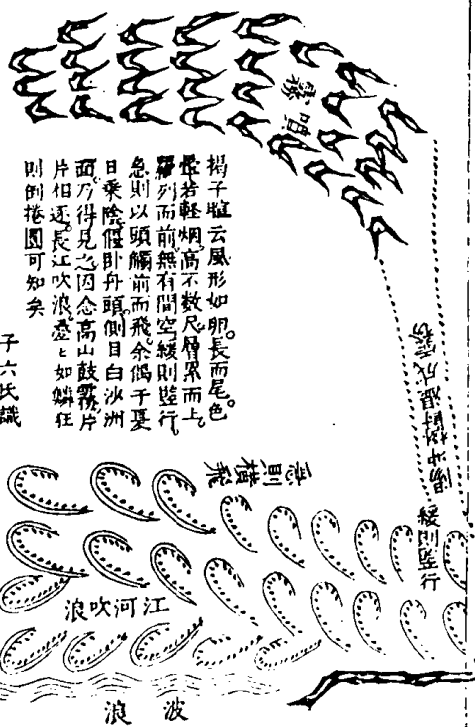 揭子暄云風形如卵。長而尾。色
恍若軽烟。高不数尺。層累而上。
羅列而前。無有間空。緩則豎行。
急則以頭觸前而飛。余偶于夏
日乘陰偃卧舟頭。側目白沙洲
面。乃得見之。因念高山鼓霧。片
片相逐。長江吹浪。叠々如鱗。狂
則倒捲圓可知矣
子六氏識
緩則豎行
急則橫飛
江河吹浪
波浪